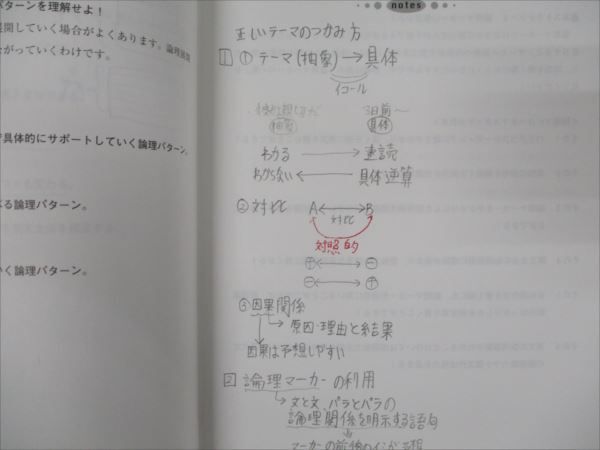 パターンを理解せよ！
展開していく場合がよくあります。論理展開
がっていくわけです。
具体的にサポートしていく論理パターン。
べる論理パターン。
いく論理パターン。
notes
正しいテーマのつかみ方
1 ① テーマ(抽象)→具体
イコール
3日前〜
抽象 具体
わかる → 速読
わからない ← 具体逆算
② 対比 A ↔ B
対比
対照的
⊕ ↔ ⊖
⊖ ↔ ⊕
③ 因果関係
→ 原因・理由と結果
因果は予想しやすい
2 論理マーカーの利用
→ 文と文、パラとパラの
論理関係を明示する語句
マーカーの前後の